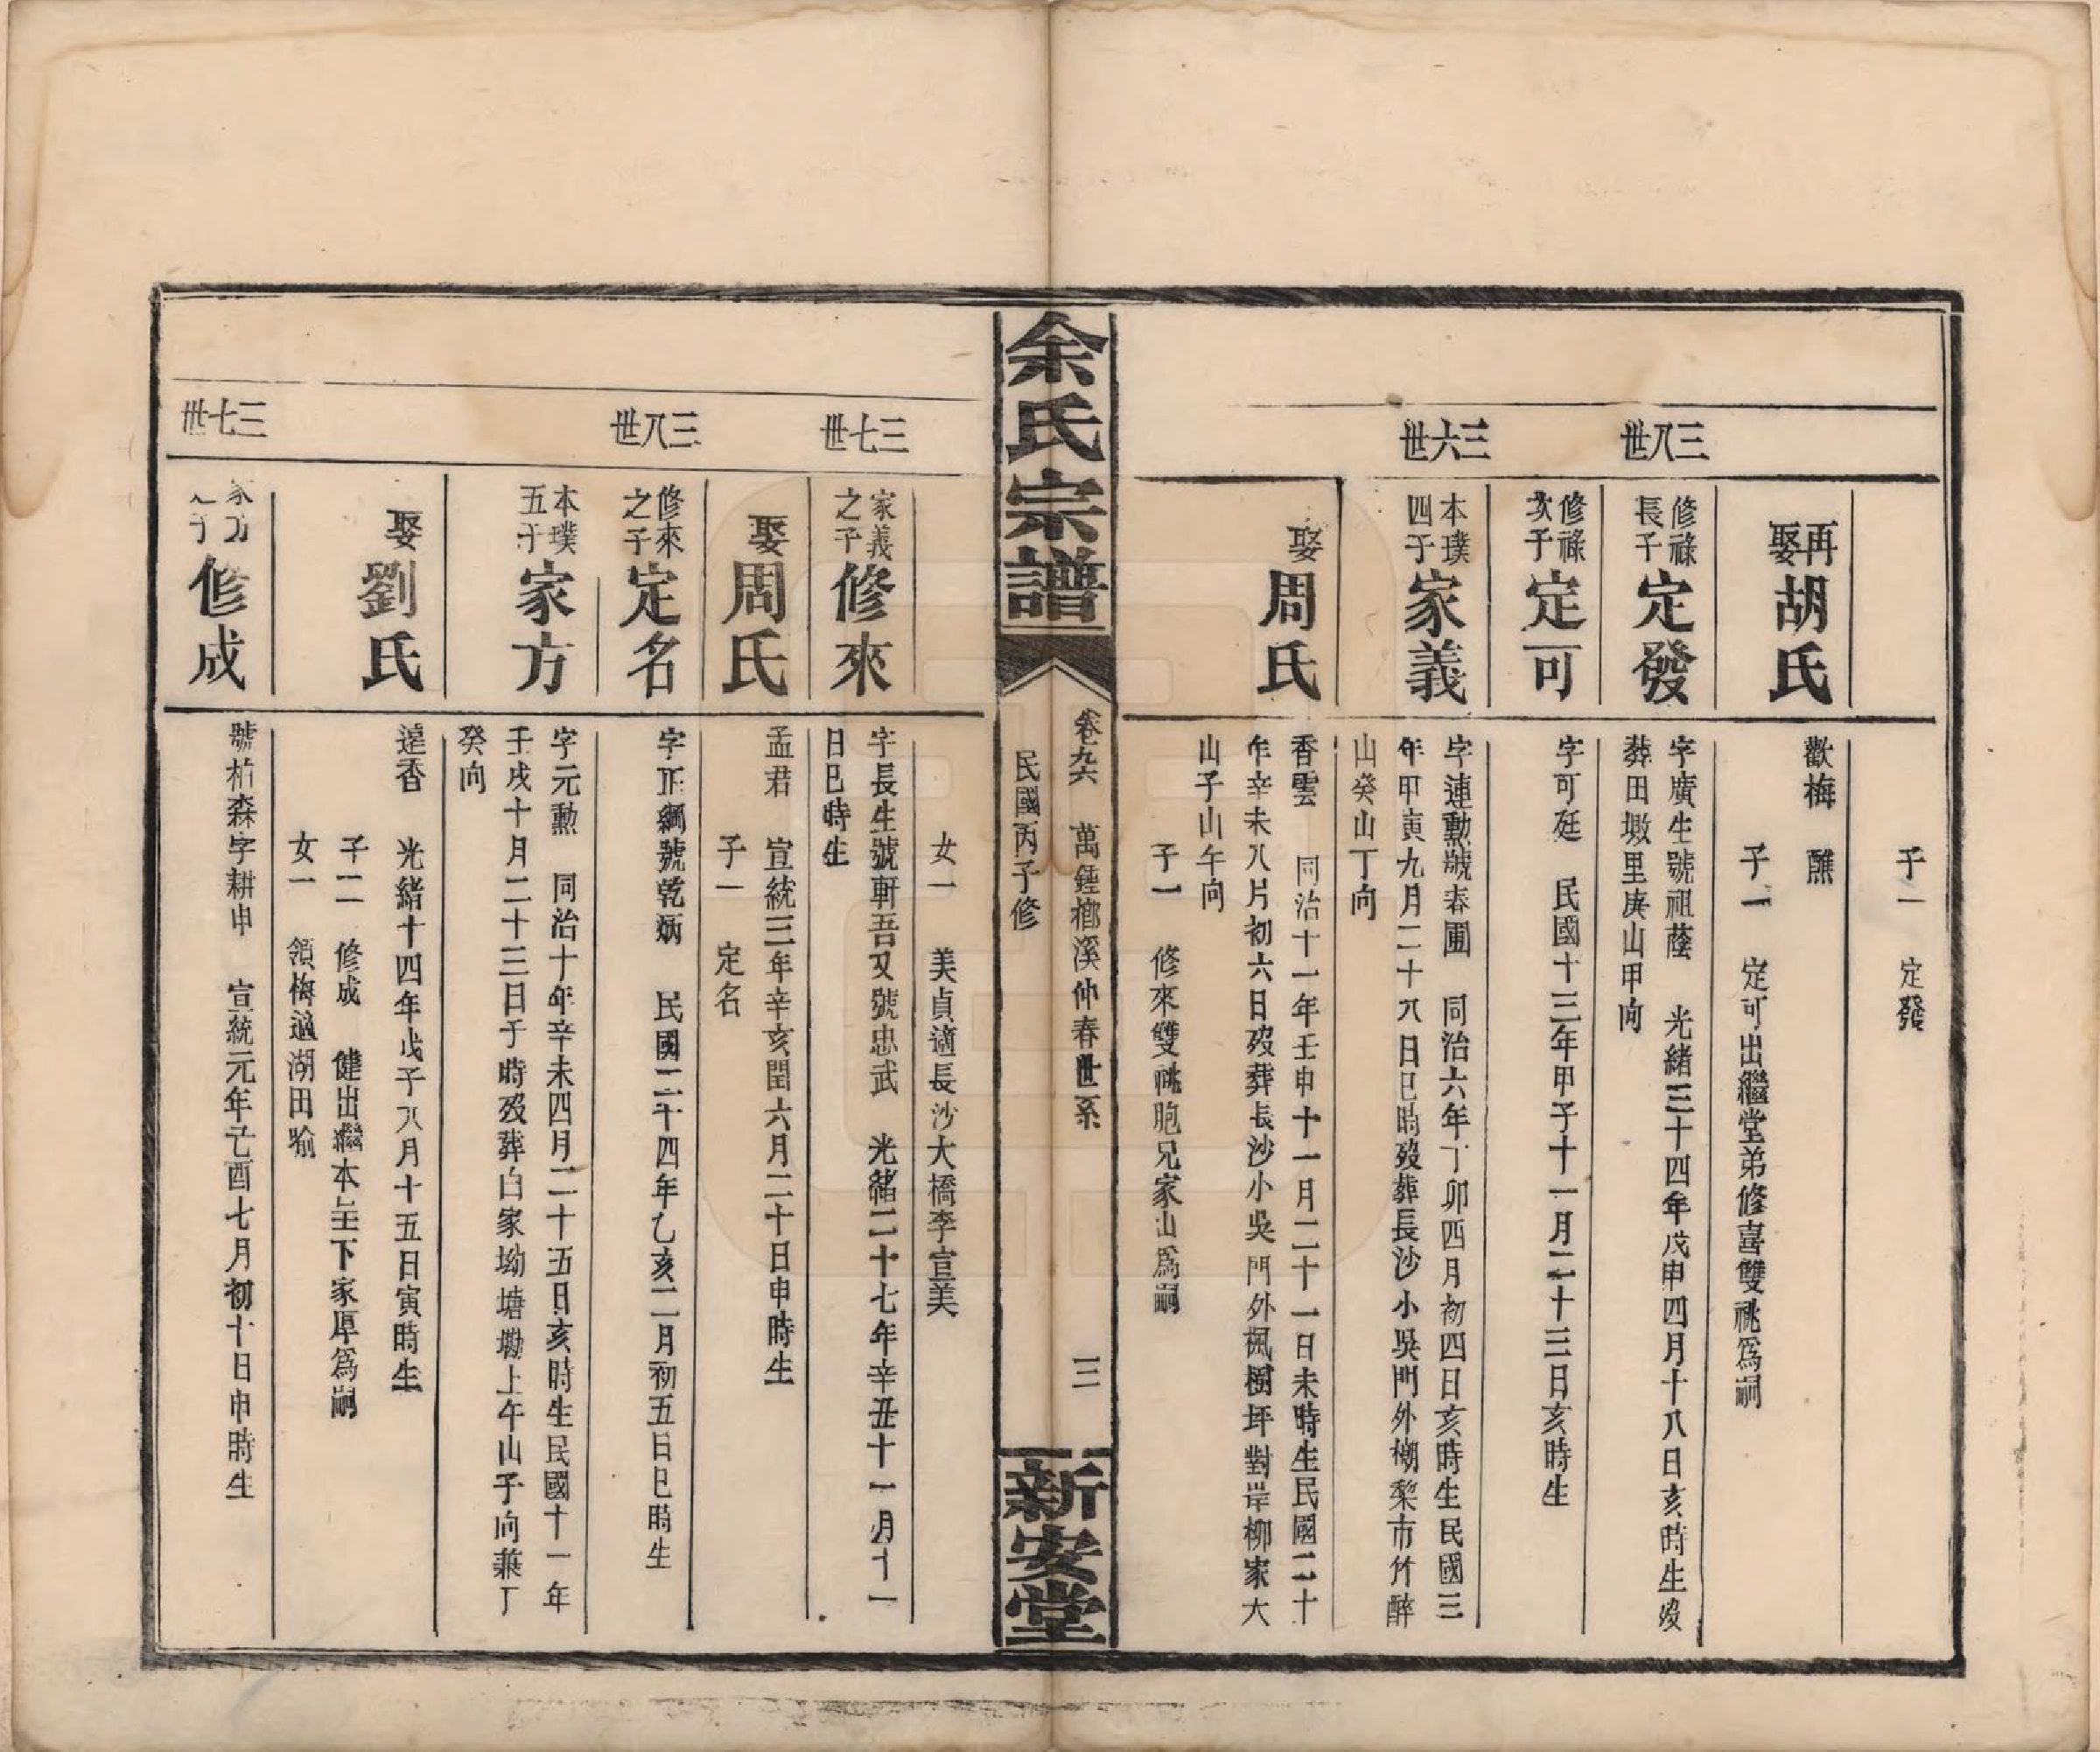 子一　定發
再娶
胡氏
歡梅　醮
子一　定可出繼堂弟修喜雙祧爲嗣
三八世
修祿長子
定發
字廣生號祖蔭　光緒三十四年戊申四月十八日亥時生歿
葬田墩里庚山甲向
修祿次子
定可
字可廷　民國十三年甲子十一月二十三日亥時生
三六世
本璞四子
家義
字連勳號春圃　同治六年丁卯四月初四日亥時生民國三
年甲寅九月二十八日巳時歿葬長沙小吳門外㮾梨市竹醉
山癸山丁向
娶
周氏
香雲　同治十一年壬申十一月二十一日未時生民國二十
年辛未八月初六日歿葬長沙小吳門外楓樹坪對岸柳家大
山子山午向
子一　修來雙祧胞兄家山爲嗣
余氏宗譜
卷九六　萬鍾㯋溪仲春世系
民國丙子修
三
新安堂
女一　美貞適長沙大橋李宣美
三七世
家義之子
修來
字長生號軒吾又號忠武　光緒二十七年辛丑十一月十一
日巳時生
娶
周氏
孟君　宣統三年辛亥閏六月二十日申時生
子一　定名
三八世
修來之子
定名
字正綱號乾炳　民國二十四年乙亥二月初五日巳時生
本璞五子
家方
字元勳　同治十年辛未四月二十五日亥時生民國十一年
壬戌十月二十三日子時歿葬白家坳塘墈上午山子向兼丁
癸向
娶
劉氏
遠香　光緒十四年戊子八月十五日寅時生
子二　修成　健出繼本呈下家厚爲嗣
女一　領梅適湖田喻
三七世
家方之子
修成
號柏森字耕申　宣統元年己酉七月初十日申時生